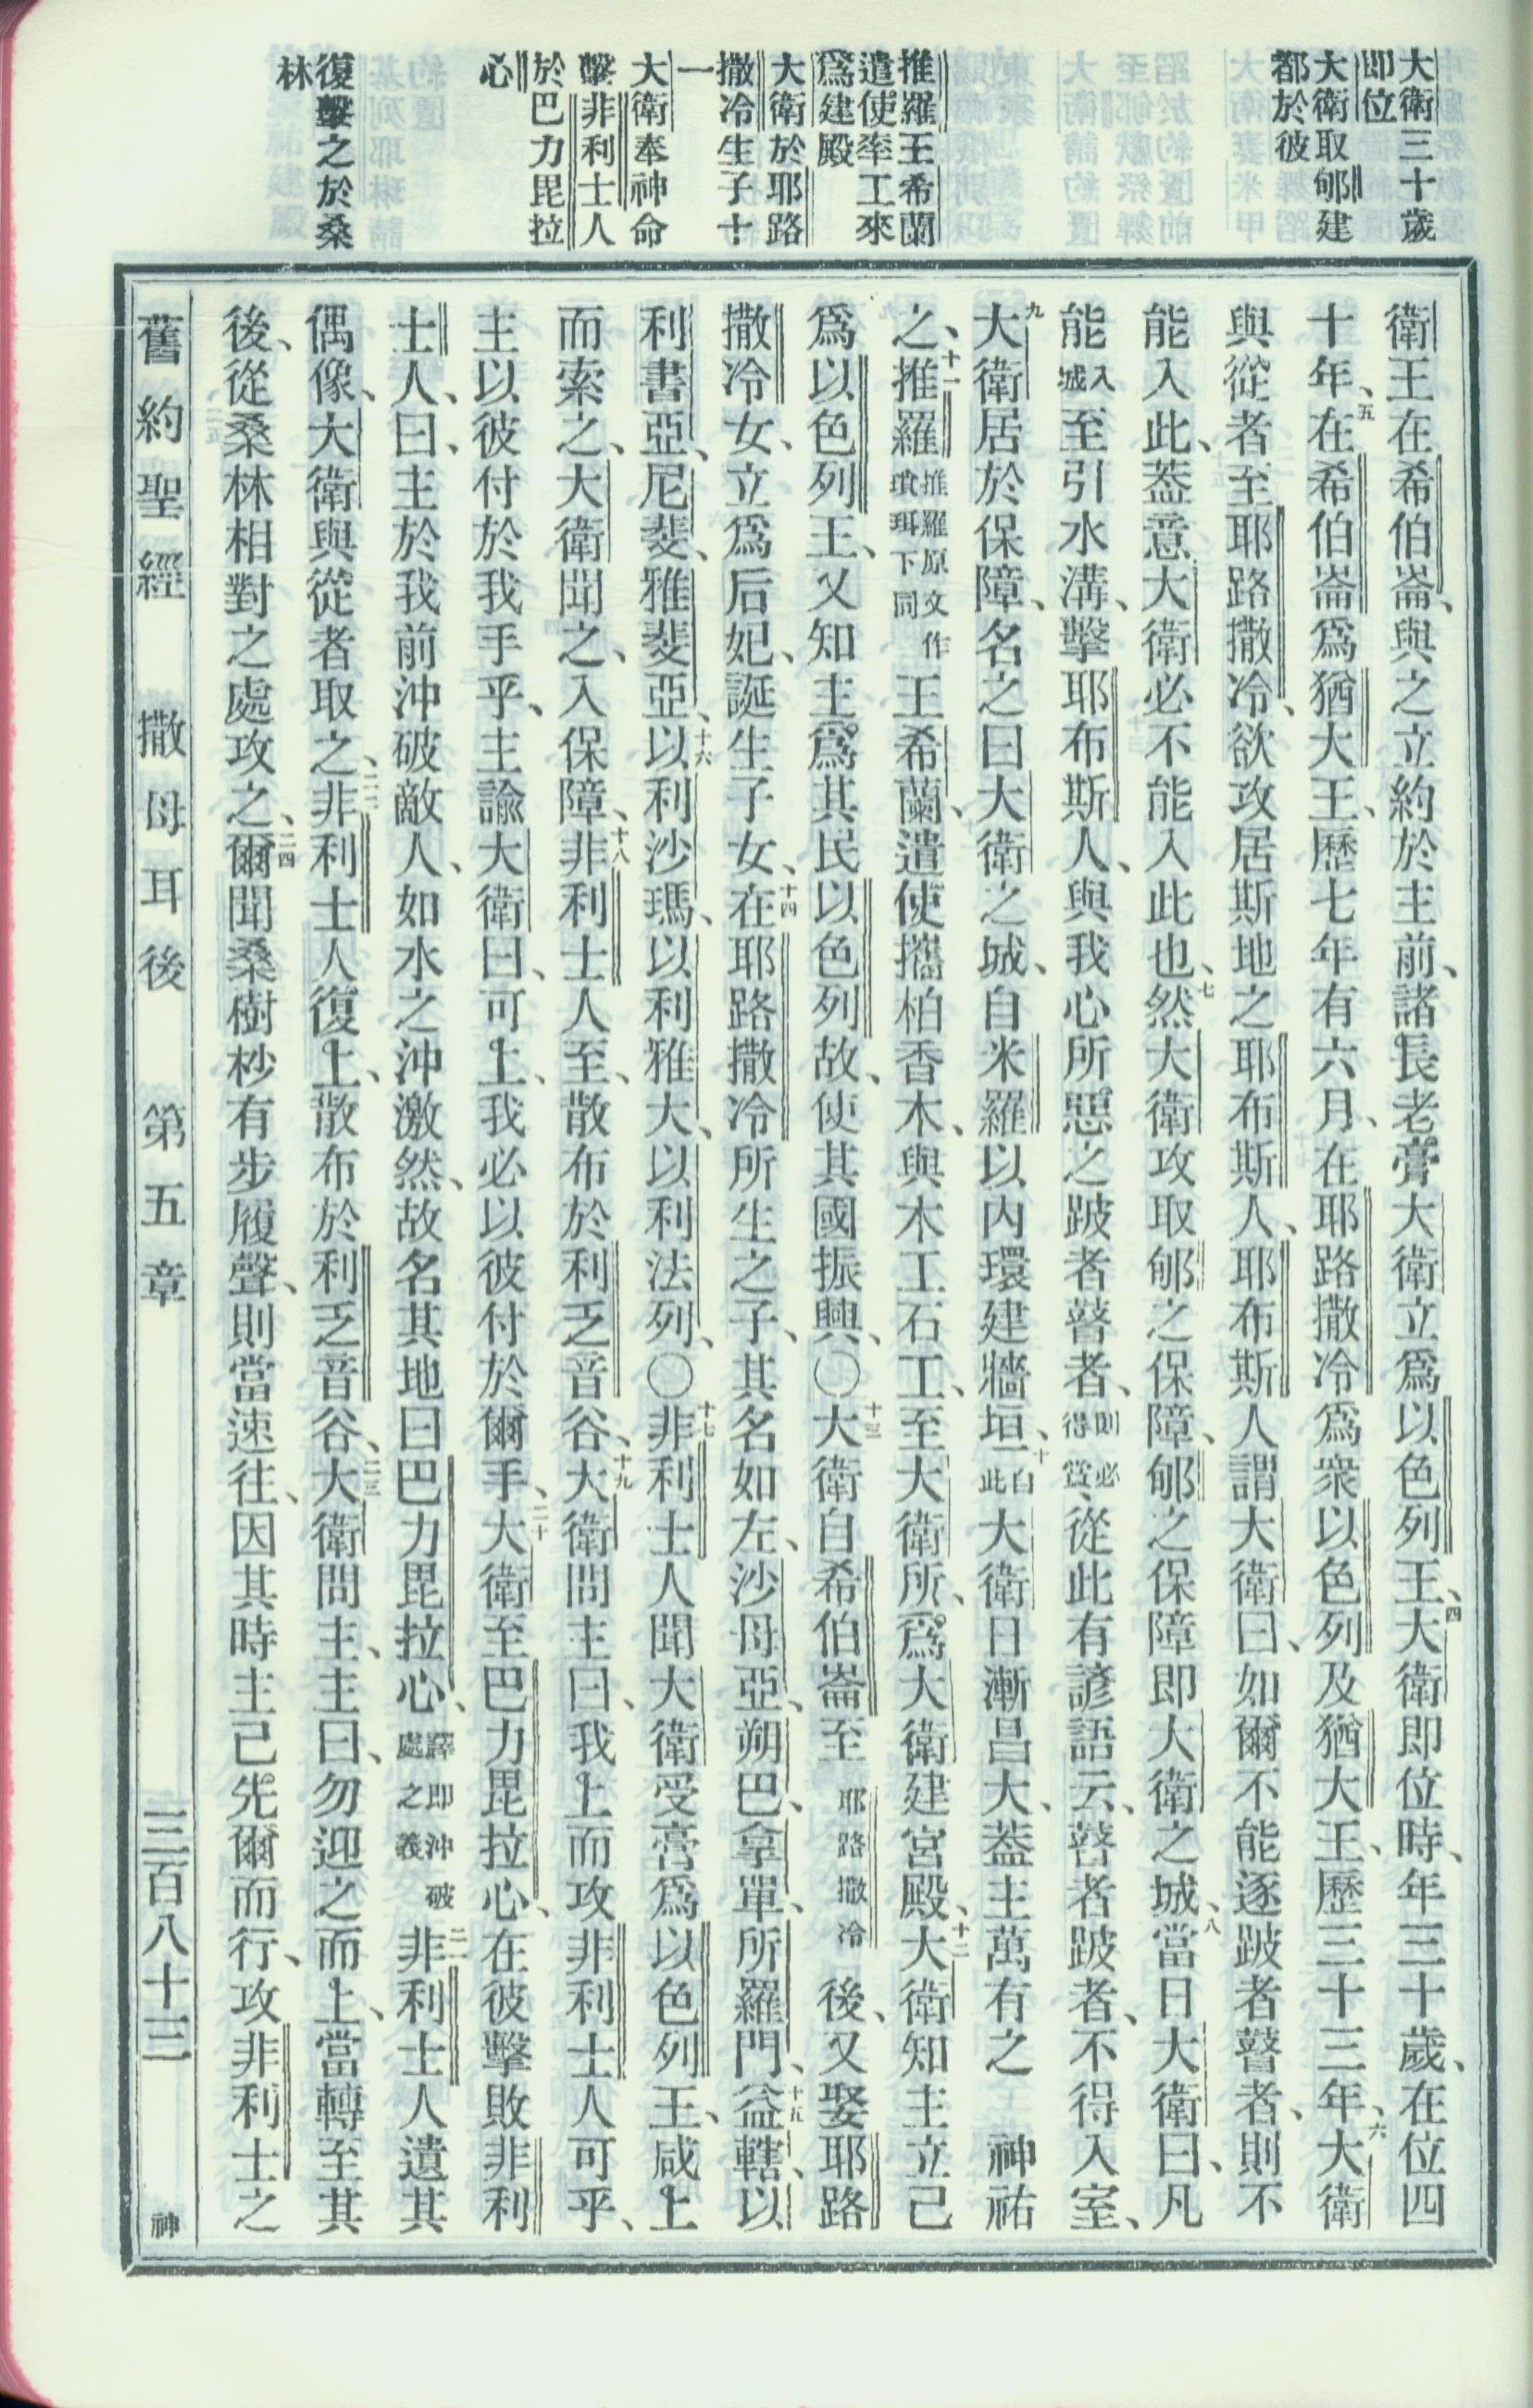 大衛三十歲
即位
大衛取郇建
都於彼
推羅王希蘭
遣使率工來
爲建殿
大衛於耶路
撒冷生子十
一
大衛奉神命
擊非利士人
於巴力毘拉
心
復擊之於桑
林
衛王在希伯崙、與之立約於主前、諸長老膏大衛立爲以色列王、四大衛即位時、年三十歲、在位四
十年、五在希伯崙爲猶大王、歷七年有六月、在耶路撒冷爲衆以色列及猶大王、歷三十三年、六大衛
與從者至耶路撒冷、欲攻居斯地之耶布斯人、耶布斯人謂大衛曰、如爾不能逐跛者瞽者、則不
能入此、葢意大衛必不能入此也、七然大衛攻取郇之保障、郇之保障即大衛之城、八當日大衛曰、凡
能入城至引水溝、擊耶布斯人、與我心所惡之跛者瞽者、則必得賞、從此有諺語云、瞽者跛者、不得入室、
九大衛居於保障、名之曰大衛之城、自米羅以內環建牆垣、十自此大衛日漸昌大、葢主萬有之 神祐
之、十一推羅推羅原文作瑱珥下同王希蘭、遣使攜柏香木、與木工石工、至大衛所、爲大衛建宮殿、十二大衛知主立己
爲以色列王、又知主爲其民以色列故、使其國振興、〇十三大衛自希伯崙至耶路撒冷後、又娶耶路
撒冷女、立爲后妃、誕生子女、十四在耶路撒冷所生之子、其名如左、沙母亞、朔巴、拿單、所羅門、十五益轄、以
利書亞、尼斐、雅斐亞、十六以利沙瑪、以利雅大、以利法列、〇十七非利士人聞大衛受膏爲以色列王、咸上
而索之、大衛聞之、入保障、十八非利士人至、散布於利乏音谷、十九大衛問主曰、我上而攻非利士人可乎、
主以彼付於我手乎、主諭大衛曰、可上、我必以彼付於爾手、二十大衛至巴力毘拉心、在彼擊敗非利
士人、曰、主於我前沖破敵人、如水之沖激然、故名其地曰巴力毘拉心、譯即沖破處之義二一非利士人遺其
偶像、大衛與從者取之、二二非利士人復上、散布於利乏音谷、二三大衛問主、主曰、勿迎之而上、當轉至其
後、從桑林相對之處攻之、二四爾聞桑樹杪有步履聲、則當速往、因其時主已先爾而行、攻非利士之
舊約聖經 撒母耳後 第五章 三百八十三 神